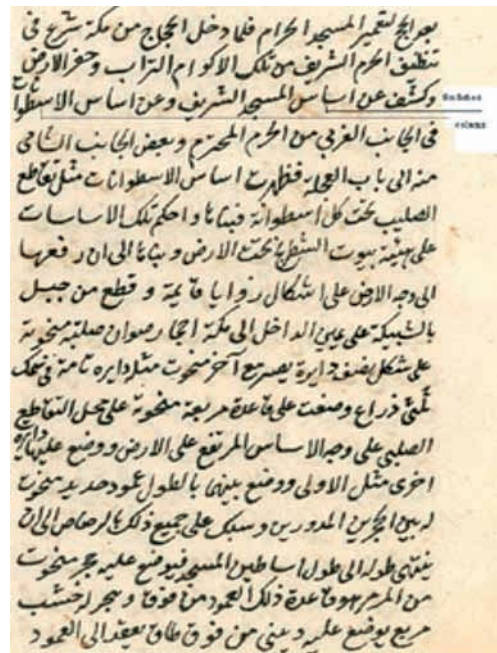 بعد الحج لتعمير المسجد الحرام فلما دخل الحجاج من مكة شرع فى
تنظيف الحرم الشريف من تلك الاكوام التراب وحفر الارض
وكشف عن اساس المسجد الشريف وعن اساس الاسطوانات
فى الجانب الغربى من الحرم المحترم وبعض الجانب الشامى
منه الى باب العجلة فظهرت اساس الاسطوانات مثل تقاطع
الصليب تحت كل اسطوانة فبناها واحكم تلك الاساسات
على هيئة بيوت الشطرنج تحت الارض وبناها الى ان رفعها
الى وجه الارض على اشكال زوايا قايمة وقطع من جبل
بالشبيكة على يمين الداخل الى مكة احجار صوان صلبة منحوتة
على شكل نصف دايرة يصير مع آخر منحوت مثله دايرة تامة فى سمك
ثلثى ذراع وصنعت على قاعدة مربعة منحوتة على محل التقاطع
الصليبى على وجه الاساس المرتفع على الارض ووضع عليها دايرة
اخرى مثل الاولى ووضع بينهما بالطول عمود حديد منحوت
له بين الحجرين المدورين وسبك على جميع ذلك بالرصاص الى ان
ينتهى طوله الى طول اساطين المسجد فيوضع عليه حجر منحوت
من المرمر هو قاعدة ذلك العمود من فوق وينجر له خشب
مربع يوضع عليه ويبنى من فوق طاق يعقد الى العمود